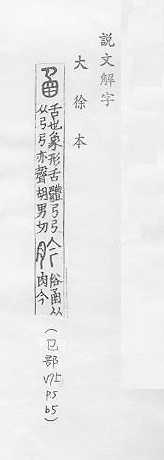 說文解字
大徐本
圅 舌也象形舌體𢎘𢎘
从𢎘𢎘亦聲胡男切
肣 俗圅从
肉今
P5
b5)